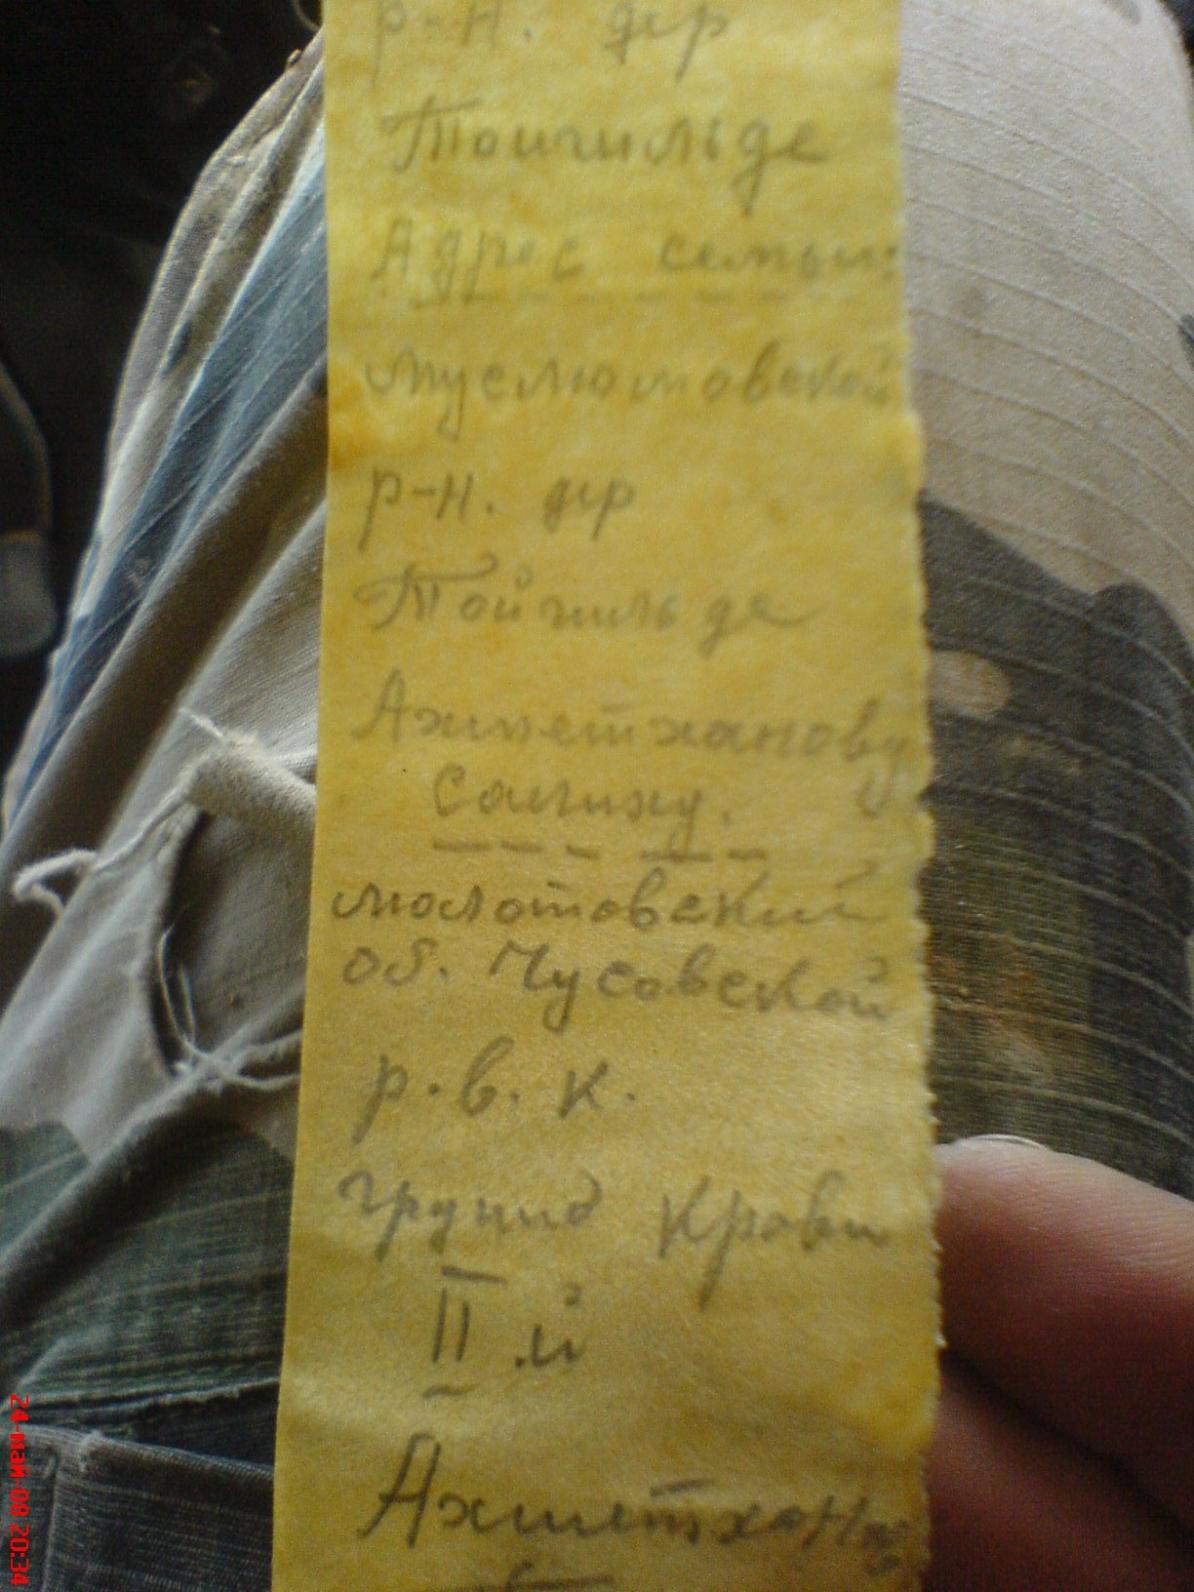 р-н. дер
Тойгильде
Адрес семьи:
Муслюмовской
р-н. дер
Тойгильде
Ахметханову
Салиху.
Молотовский
об. Чусовской
р.в.к.
группа Крови
II й
Ахметхано
24-май-09 20:34